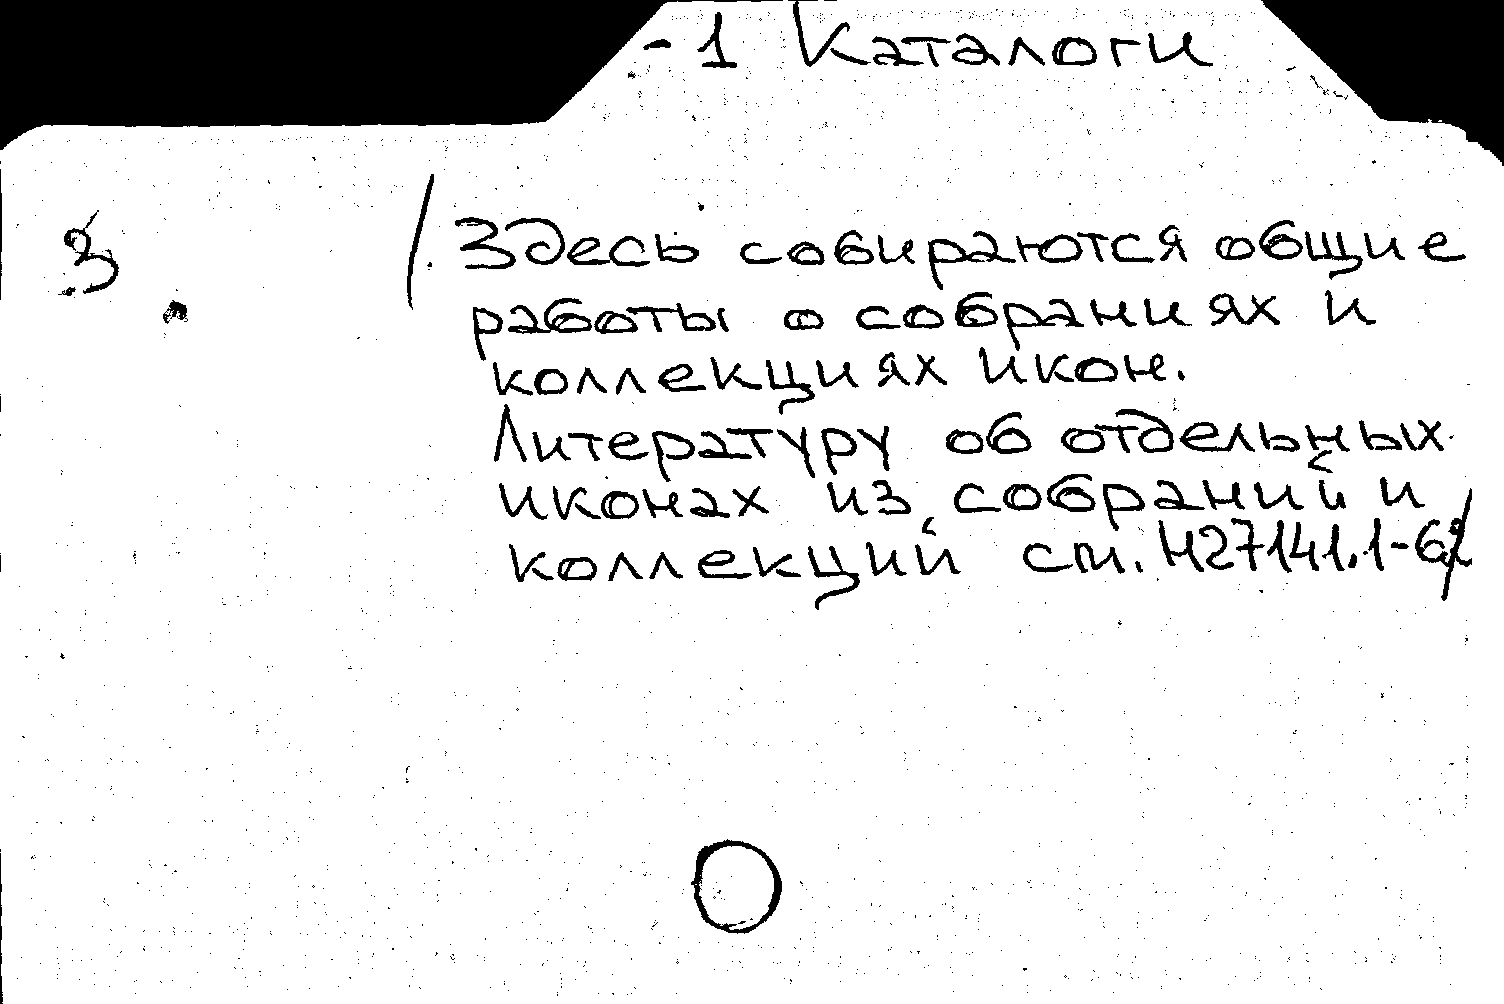 -1 Каталоги
3
Здесь собираются общие
работы о собраниях и
коллекциях икон.
Литературу об отдельных
иконах из собраний и
коллекций см. Н27141.1-6